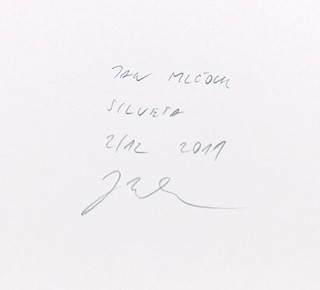 JAN MLČOCH
SILUETA
2/12 2011